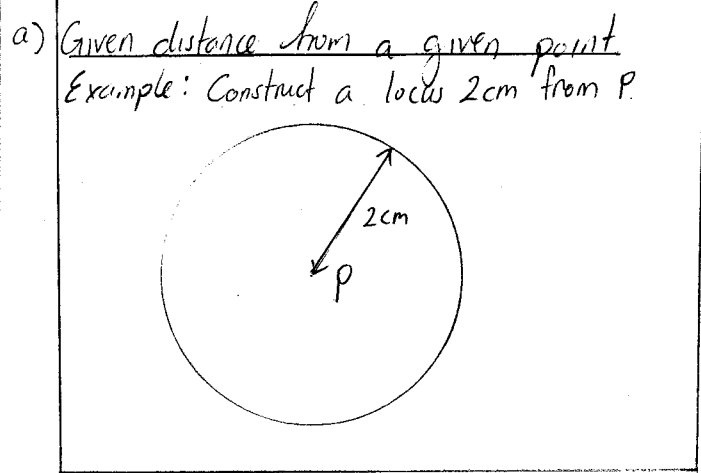 a) Given distance from a given point
Example: Construct a locus 2cm from P.
2cm
P